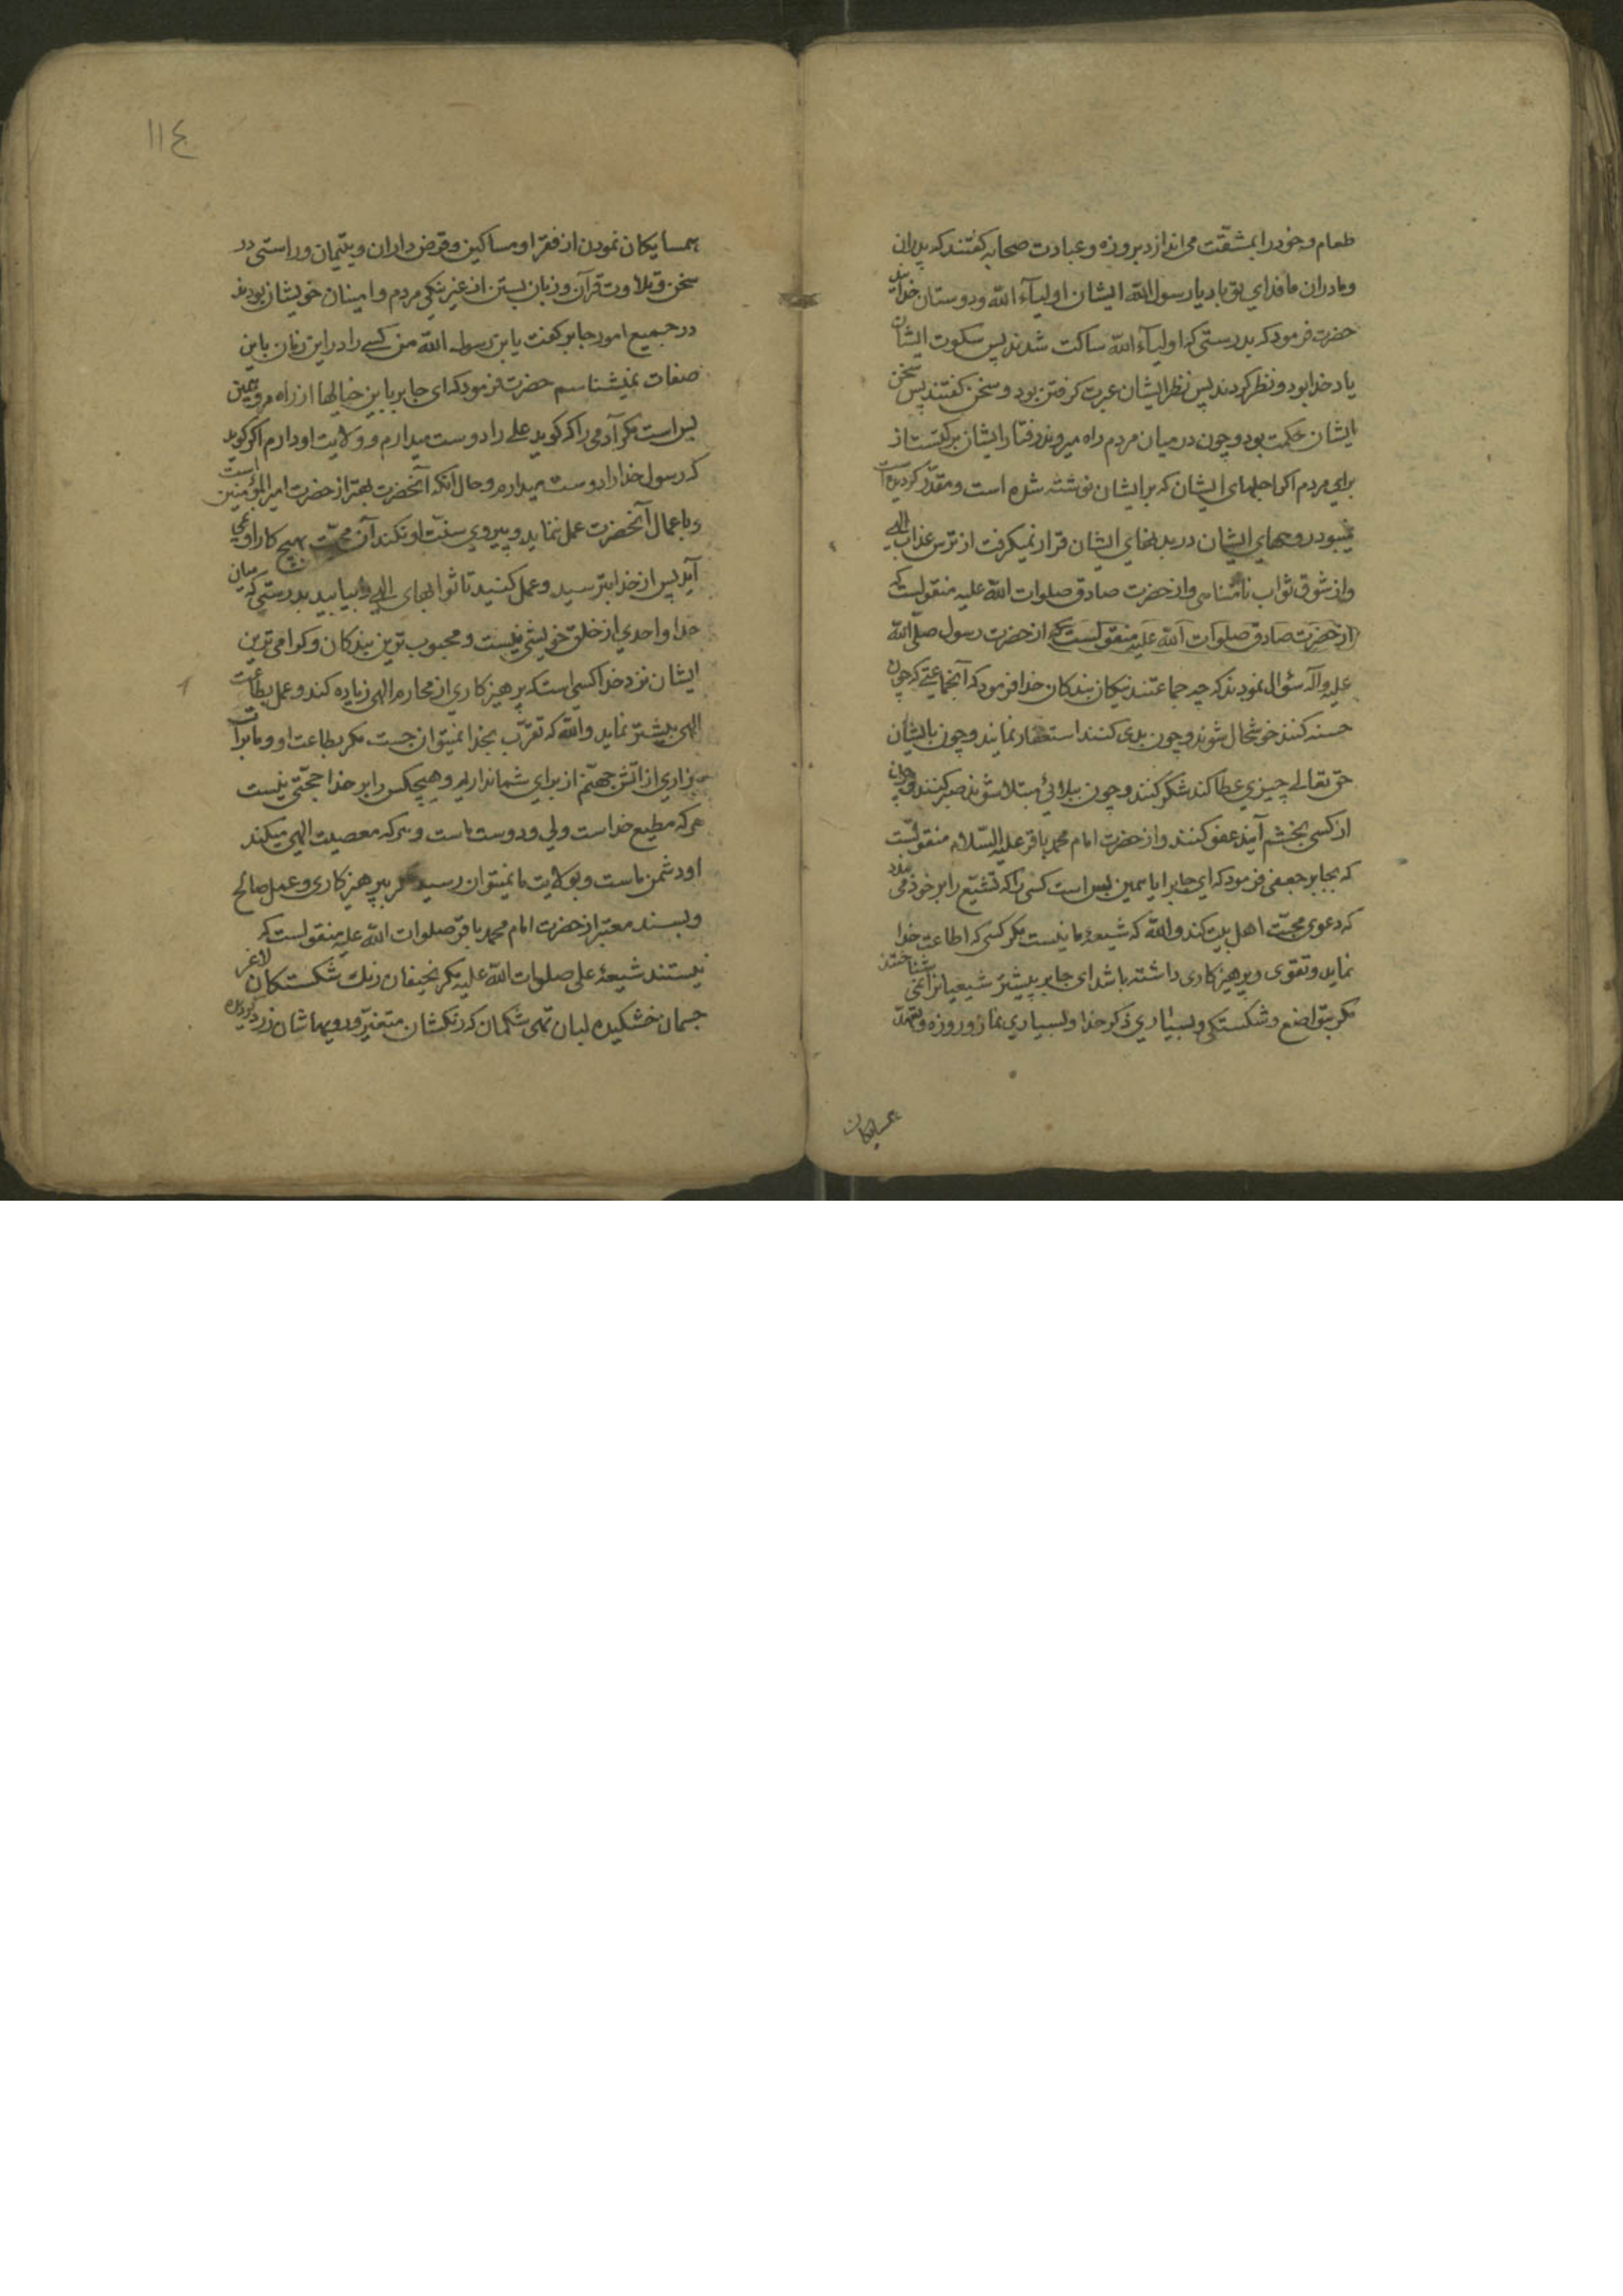 طعام و خود را بمشقّت می اندازد بروزه و عبادت صحابه گفتند که پدران
و مادران ما فدای تو باد یا رسول الله ایشان اولیآء الله و دوستان خدایند
حضرت فرمود که بدرستی که اولیآء الله ساکت شدند پس سکوت ایشان
یاد خدا بود و نظر کردند پس نظر ایشان عبرت کرفتن بود و سخن کفتند پس سخن
ایشان حکمت بود و چون در میان مردم راه میروند رفتار ایشان برکتست از
برای مردم اکر اجلهای ایشان که بر ایشان نوشته شده است و مقدّر کردیده است
نمیبود روحهای ایشان در بدنهای ایشان قرار نمیکرفت از ترس عذاب الهی
و از شوق ثواب نامتناهی و از حضرت صادق صلوات الله علیه منقولست که
از حضرت صادق صلوات الله علیه منقولست که از حضرت رسول صلّی الله
علیه و آله سؤال نمودند که چه جماعتند نیکان بندکان خدا فرمود که آنجماعتی که چون
حسنه کنند خوشحال شوند و چون بدی کنند استغفار نمایند و چون بایشان
حق تعالی چیزی عطا کند شکر کنند و چون ببلائی مبتلا شوند صبر کنند و چون
از کسی بخشم آیند عفو کنند و از حضرت امام محمد باقر علیه السّلام منقولست
که بجابر جعفی فرمود که ای جابر ایا همین بس است کسی را که تشیّع را بر خود می بندد
که دعوی محبّت اهل بیت کند و الله که شیعۀ ما نیست مکر کسی که اطاعت خدا
نماید و تقوی و پرهیزکاری داشته باشد ای جابر پیشتر شیعیانرا نمی شناختند
مکر بتواضع و شکستکی و بسیاری ذکر خدا و بسیاری نماز و روزه و تعهّد
همسایکان
۱۱٤
همسایکان نمودن از فقرا و مساکین و قرض داران و یتیمان و راستی در
سخن و تلاوت قرآن و زبان بستن از غیر نیکی مردم و امینان خویشان بودند
در جمیع امور جابر کفت یا بن رسول الله من کسی را در این زمان باین
صفات نمیشناسم حضرت فرمود که ای جابر باین خیالها از راه مرو همین
بس است مکر آدمی را که کوید علی را دوست میدارم و ولایت او دارم اکر کوید
که رسول خدا را دوست میدارم و حال انکه آنحضرت بهتر از حضرت امیر المؤمنین است
و باعمال آنحضرت عمل ننماید و پیروی سنّت او نکند آن محبّت هیچ کار او نمی
آید پس از خدا بترسید و عمل کنید تا ثوابهای الهی را بیابید بدرستی که میان
خدا و احدی از خلق خویشی نیست و محبوب ترین بندکان و کرامی ترین
ایشان نزد خدا کسی است که پرهیزکاری از محارم الهی زیاده کند و عمل بطاعت
الهی بیشتر نماید و الله که تقرّب بخدا نمیتوان جست مکر بطاعت او و ما برات
بیزاری از آتش جهنّم از برای شما نداریم و هیچکس را بر خدا حجّتی نیست
هر که مطیع خداست ولی و دوست ماست و هر که معصیت الهی میکند
او دشمن ماست و بولایت ما نمیتوان رسید مکر بپرهیزکاری و عمل صالح
و بسند معتبر از حضرت امام محمد باقر صلوات الله علیه منقولست که
نیستند شیعۀ علی صلوات الله علیه مکر نحیفان رنک شکستکان لاغر
جسمان خشکیده لبان تهی شکمان که رنکشان متغیّر و رویهاشان زرد کردیده